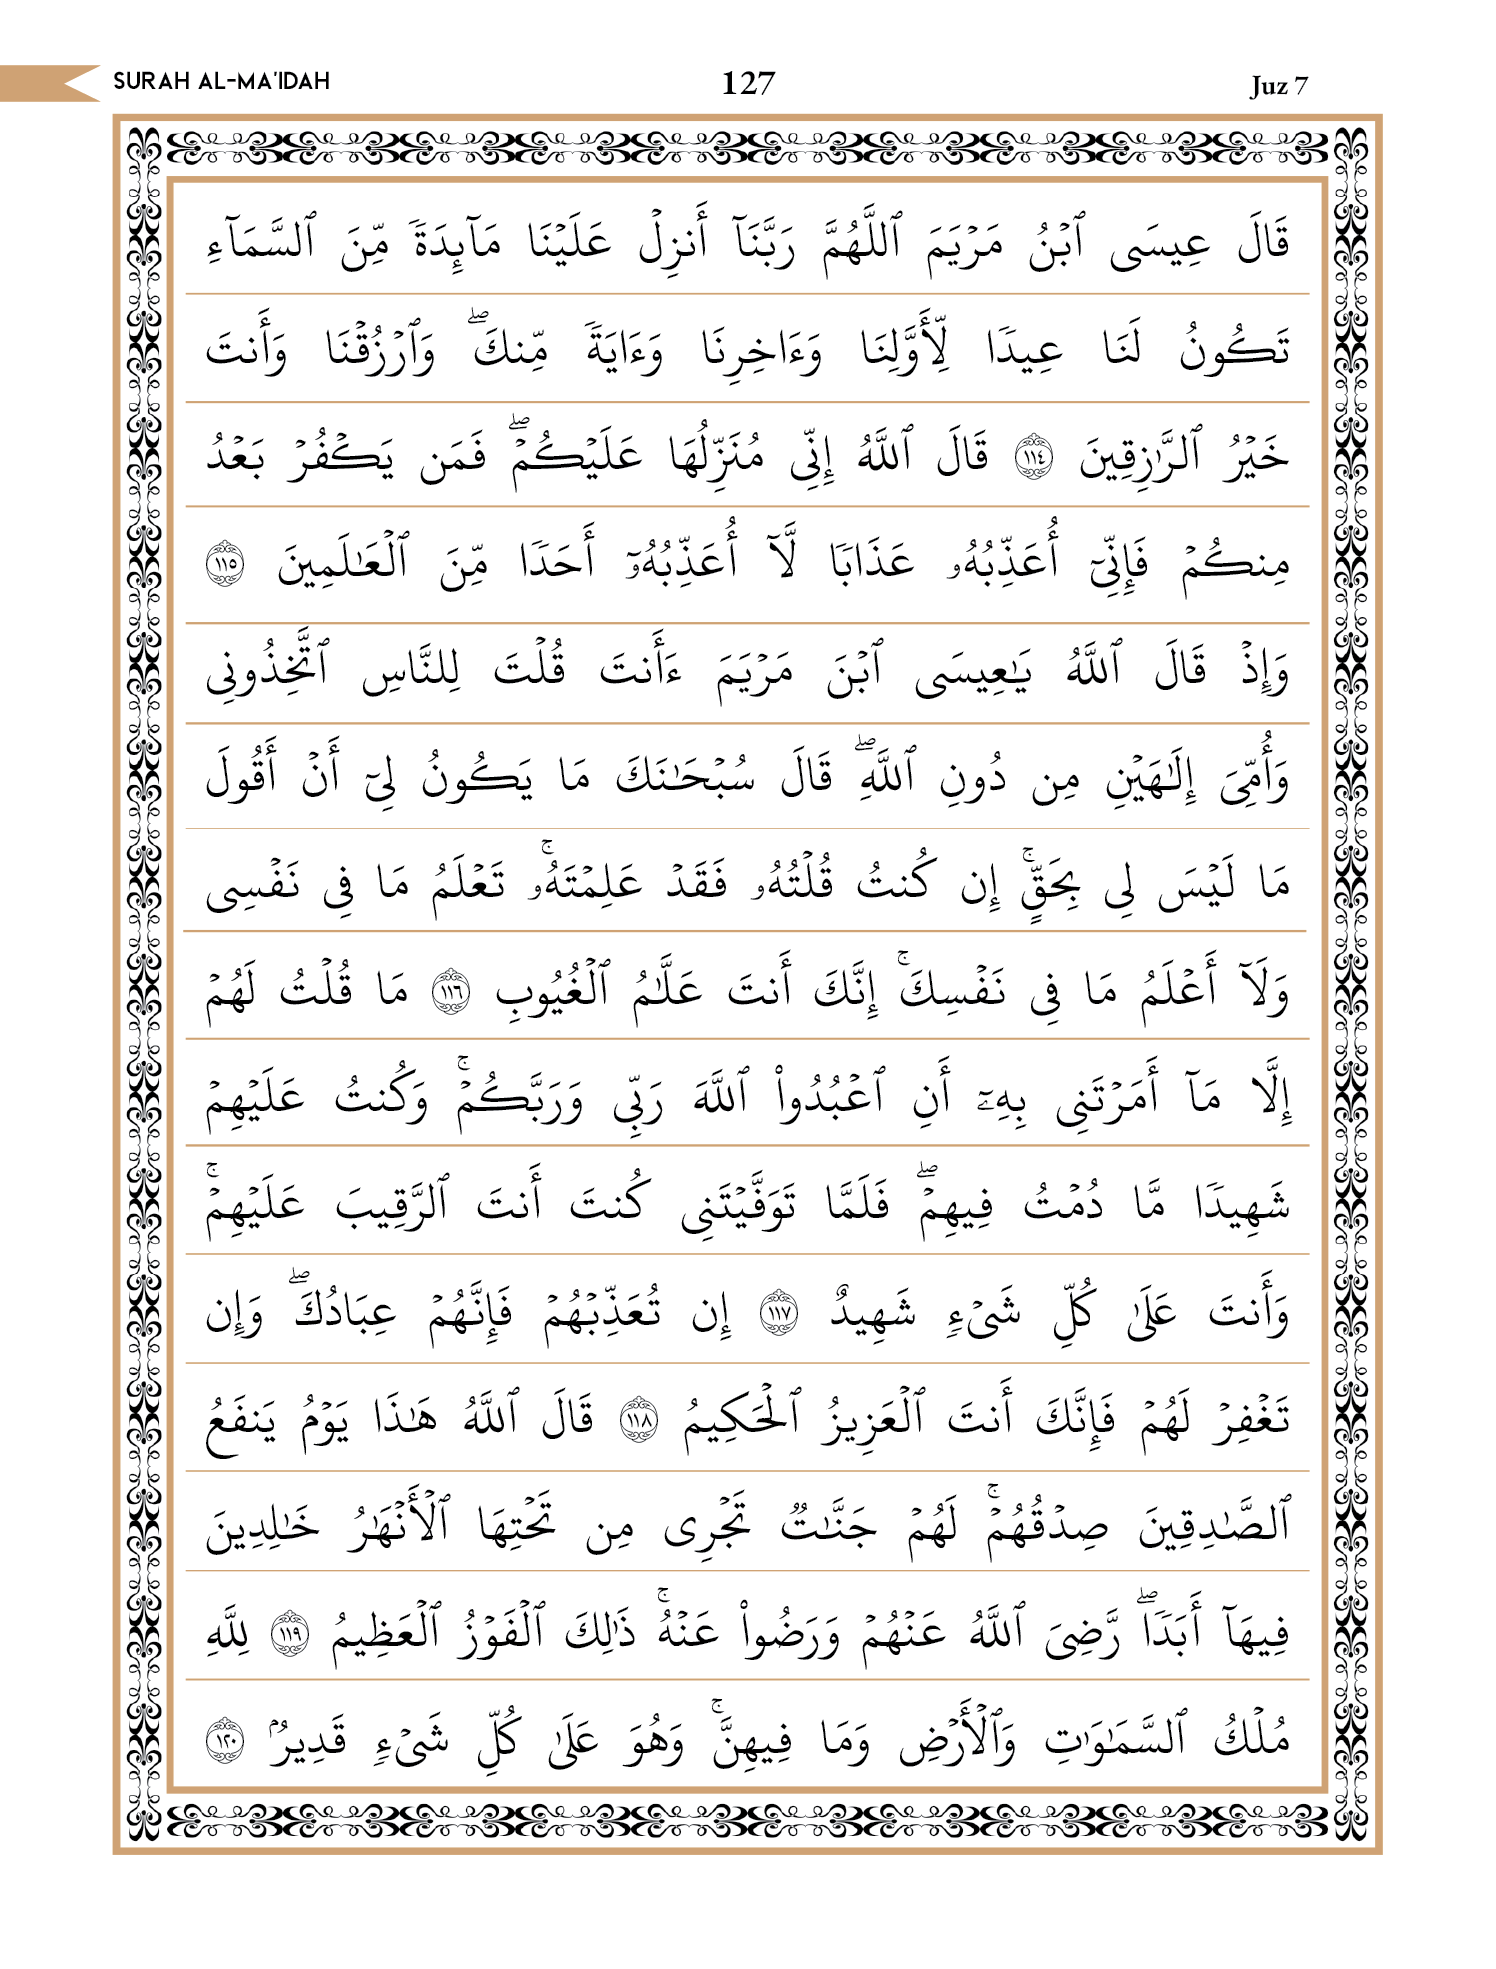 SURAH AL-MA'IDAH 127 Juz 7
قَالَ عِيسَى ٱبۡنُ مَرۡيَمَ ٱللَّهُمَّ رَبَّنَآ أَنزِلۡ عَلَيۡنَا مَآئِدَةٗ مِّنَ ٱلسَّمَآءِ
تَكُونُ لَنَا عِيدٗا لِّأَوَّلِنَا وَءَاخِرِنَا وَءَايَةٗ مِّنكَۖ وَٱرۡزُقۡنَا وَأَنتَ
خَيۡرُ ٱلرَّٰزِقِينَ ١١٤ قَالَ ٱللَّهُ إِنِّي مُنَزِّلُهَا عَلَيۡكُمۡۖ فَمَن يَكۡفُرۡ بَعۡدُ
مِنكُمۡ فَإِنِّيٓ أُعَذِّبُهُۥ عَذَابٗا لَّآ أُعَذِّبُهُۥٓ أَحَدٗا مِّنَ ٱلۡعَٰلَمِينَ ١١٥
وَإِذۡ قَالَ ٱللَّهُ يَٰعِيسَى ٱبۡنَ مَرۡيَمَ ءَأَنتَ قُلۡتَ لِلنَّاسِ ٱتَّخِذُونِي
وَأُمِّيَ إِلَٰهَيۡنِ مِن دُونِ ٱللَّهِۖ قَالَ سُبۡحَٰنَكَ مَا يَكُونُ لِيٓ أَنۡ أَقُولَ
مَا لَيۡسَ لِي بِحَقٍّۚ إِن كُنتُ قُلۡتُهُۥ فَقَدۡ عَلِمۡتَهُۥۚ تَعۡلَمُ مَا فِي نَفۡسِي
وَلَآ أَعۡلَمُ مَا فِي نَفۡسِكَۚ إِنَّكَ أَنتَ عَلَّٰمُ ٱلۡغُيُوبِ ١١٦ مَا قُلۡتُ لَهُمۡ
إِلَّا مَآ أَمَرۡتَنِي بِهِۦٓ أَنِ ٱعۡبُدُواْ ٱللَّهَ رَبِّي وَرَبَّكُمۡۚ وَكُنتُ عَلَيۡهِمۡ
شَهِيدٗا مَّا دُمۡتُ فِيهِمۡۖ فَلَمَّا تَوَفَّيۡتَنِي كُنتَ أَنتَ ٱلرَّقِيبَ عَلَيۡهِمۡۚ
وَأَنتَ عَلَىٰ كُلِّ شَيۡءٖ شَهِيدٌ ١١٧ إِن تُعَذِّبۡهُمۡ فَإِنَّهُمۡ عِبَادُكَۖ وَإِن
تَغۡفِرۡ لَهُمۡ فَإِنَّكَ أَنتَ ٱلۡعَزِيزُ ٱلۡحَكِيمُ ١١٨ قَالَ ٱللَّهُ هَٰذَا يَوۡمُ يَنفَعُ
ٱلصَّٰدِقِينَ صِدۡقُهُمۡۚ لَهُمۡ جَنَّٰتٞ تَجۡرِي مِن تَحۡتِهَا ٱلۡأَنۡهَٰرُ خَٰلِدِينَ
فِيهَآ أَبَدٗاۖ رَّضِيَ ٱللَّهُ عَنۡهُمۡ وَرَضُواْ عَنۡهُۚ ذَٰلِكَ ٱلۡفَوۡزُ ٱلۡعَظِيمُ ١١٩ لِلَّهِ
مُلۡكُ ٱلسَّمَٰوَٰتِ وَٱلۡأَرۡضِ وَمَا فِيهِنَّۚ وَهُوَ عَلَىٰ كُلِّ شَيۡءٖ قَدِيرُۢ ١٢٠